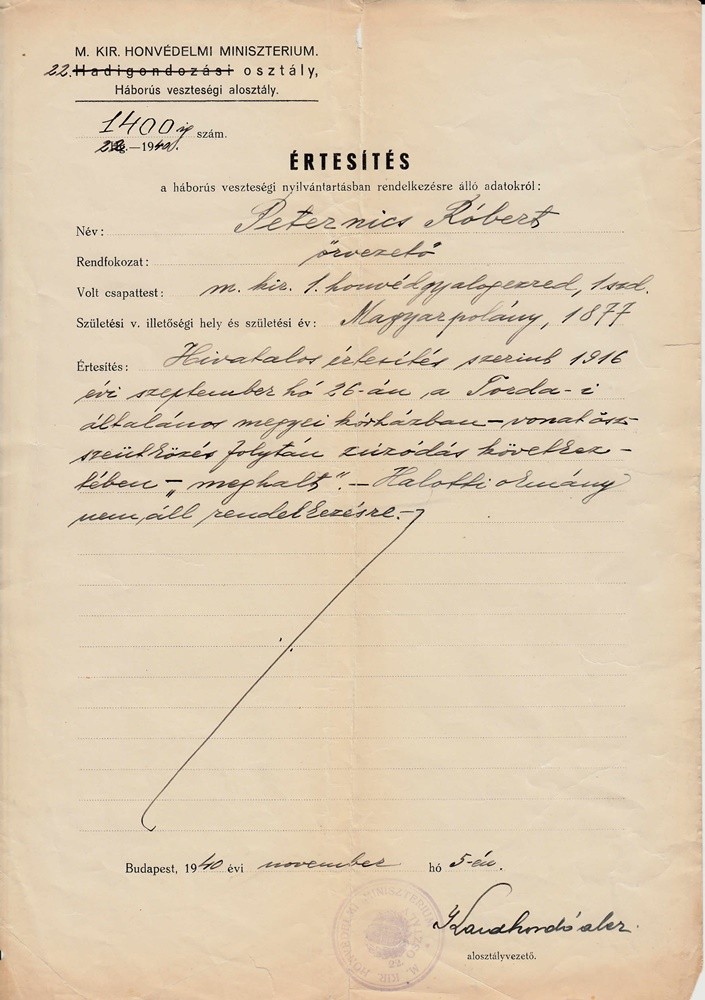 M. KIR. HONVÉDELMI MINISZTERIUM.
22. Hadigondozási osztály,
Háborús veszteségi alosztály.
1400 szám.
—1940.
ÉRTESÍTÉS
a háborús veszteségi nyilvántartásban rendelkezésre álló adatokról:
Név: Peternics Róbert
Rendfokozat: őrvezető
Volt csapattest: m. kir. 1. honvédgyalogezred, 1. szd.
Születési v. illetőségi hely és születési év: Magyarpolány, 1877
Értesítés: Hivatalos értesítés szerint 1916
évi szeptember hó 26-án a Torda-i
általános megyei kórházban – vonatösz-
szeütközés folytán zúzódás következ-
tében – „meghalt”. – Halotti okmány
nem áll rendelkezésre. –
Budapest, 1940 évi november hó 5-én.
M. KIR. HONVÉDELMI MINISZTERIUM 22
alosztályvezető.